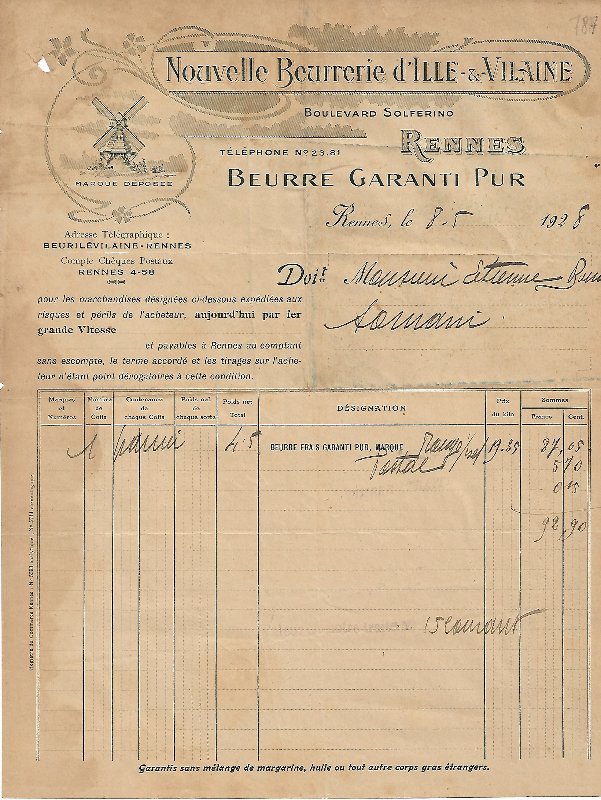 787
Nouvelle Beurrerie d'Ille-&-Vilaine
Boulevard Solferino
Rennes
Téléphone No 23.81
Beurre Garanti Pur
Marque Déposée
Rennes, le 8.5 1928
Adresse Télégraphique :
BEURILÉVILAINE-RENNES
Compte Chèques Postaux
RENNES 4-58
Doit Monsieur Étienne
pour les marchandises désignées ci-dessous expédiées aux
risques et périls de l'acheteur, aujourd'hui par fer
grande Vitesse
et payables à Rennes au comptant
sans escompte, le terme accordé et les tirages sur l'ache-
teur n'étant point dérogatoires à cette condition.
Marques et Numéros
Nombre de Colis
Contenance de chaque Colis
Poids net de chaque sorte
Poids net Total
DÉSIGNATION
Prix du kilo
Sommes
Francs
Cent.
1 panier 4.5 BEURRE FRAIS GARANTI PUR, MARQUE Rouge 19.35 87,05
Postal 5 70
0 15
92,90
Garantis sans mélange de margarine, huile ou tout autre corps gras étrangers.